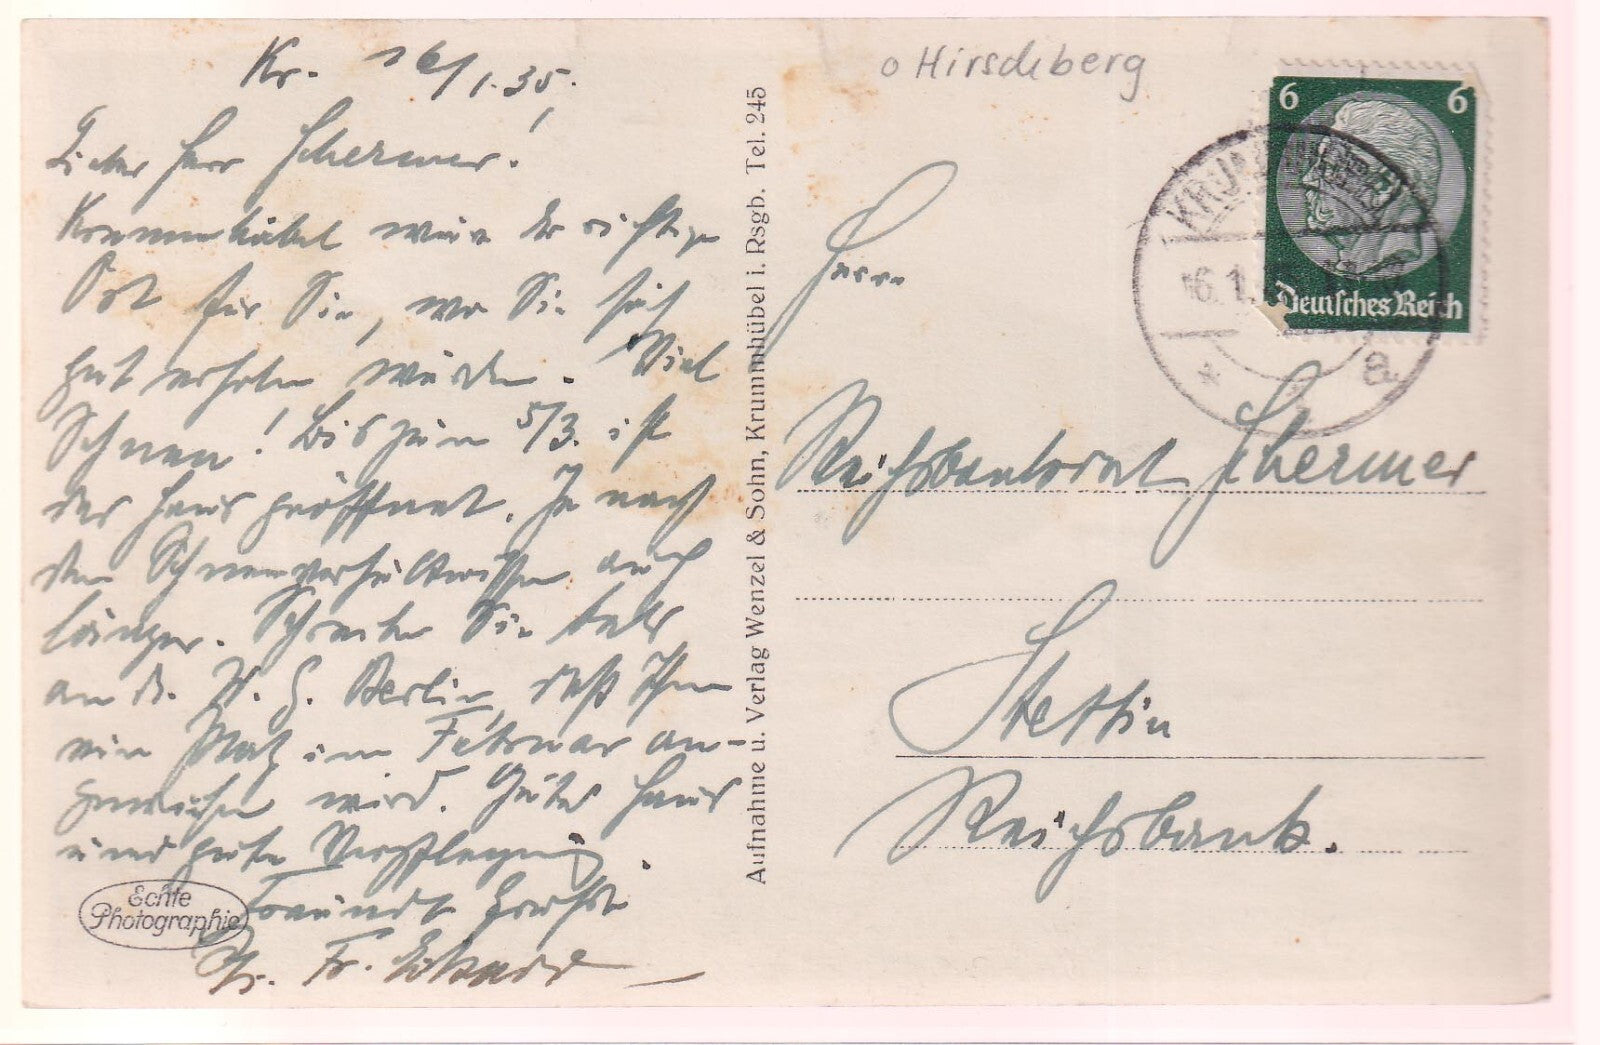 Kr. 16/1.35.
Lieber Herr Schermer!
Krummhübel wäre der richtige
Ort für Sie, wo Sie sich
gut erholen würden. Viel
Schnee! Bis zum 5/3. ist
das Haus geöffnet. Je nach
den Schneeverhältnissen auch
länger. Schreiben Sie bald
an d. W. G. Berlin, daß Ihnen
ein Platz im Februar an-
gewiesen wird. Gutes Haus
und gute Verpflegung.
Freundl. Grüße
Fr.
Echte
Photographie
Aufnahme u. Verlag Wenzel & Sohn, Krummhübel i. Rsgb. Tel. 245
o Hirschberg
6 6
Deutsches Reich
KRUMMHÜBEL
16.1.
a
Herrn
Reichsbankrat Schermer
Stettin
Reichsbank.